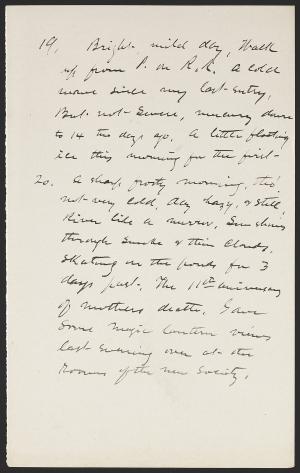 19. Bright, mild day, Walk
up from P. on R.R. A cold
wave since my last entry,
But not severe, mercury down
to 14 two days ago. A little floating
ice this morning for the first.
20. A sharp, frosty morning, tho'
not very cold, day hazy, & still
River like a mirror, Sun shines
through smoke & thin clouds.
Skating on the ponds for 3
days past. The 11th anniversary
of mothers death. Gave
some Magic Lantern views
last evening over at the
Rooms of the new Society.